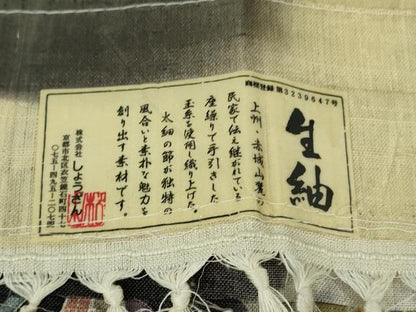 商標登録 第3239647号
生紬
上州・赤城山麓の
民家で伝え継がれている
座繰りで手引きした
玉糸を使用し織り上げた。
太細の節が独特の
風合いと素朴な魅力を
創り出す素材です。
株式会社 しょうざん
京都市北区衣笠鏡石町四十七
〇七五-四九五-二〇七